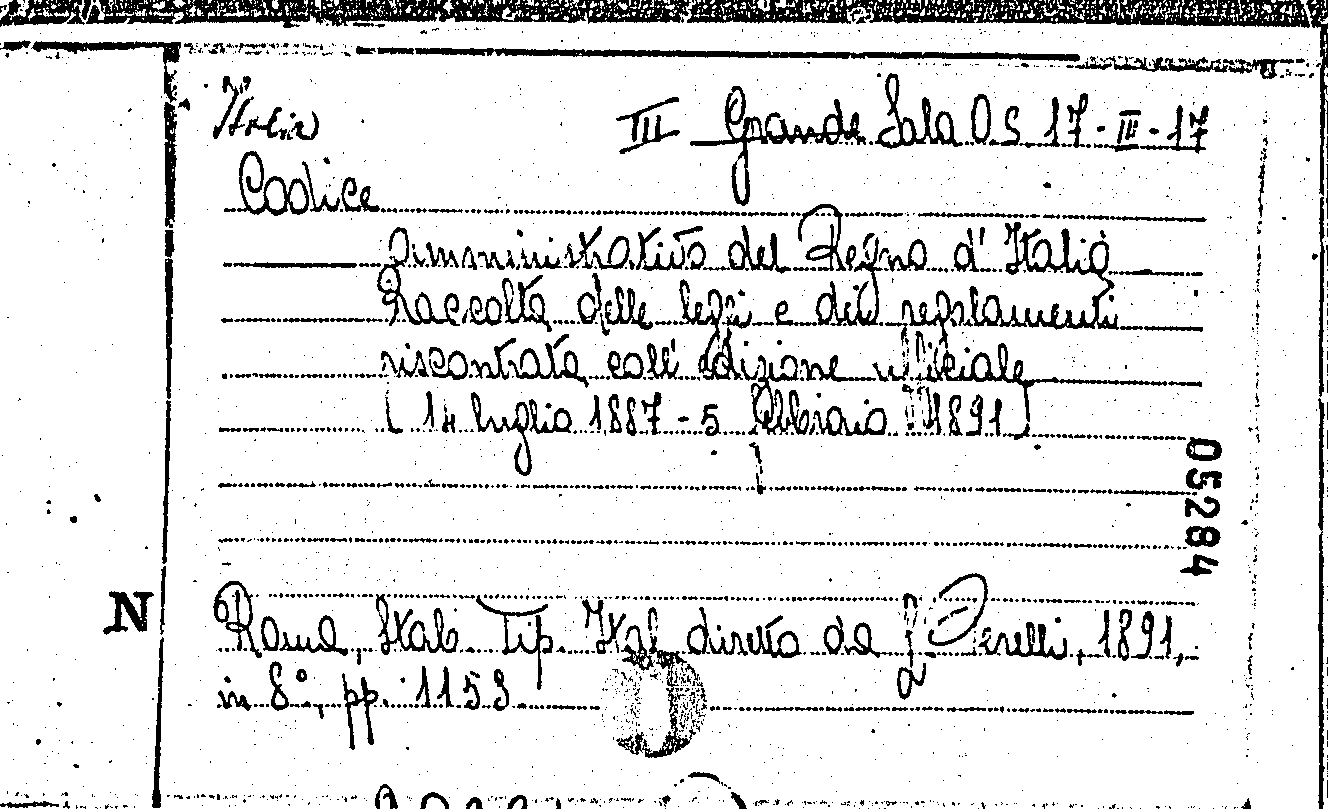 Italia
III Grande Sala O S 17 - III - 17
Codice
Amministrativo del Regno d'Italia
Raccolta delle leggi e dei regolamenti
riscontrata coll' edizione ufficiale
( 14 luglio 1887 - 5 febbraio 1891 )
05284
N
Roma, Stab. Tip. Ital. diretto da L. Perelli, 1891,
in 8°, pp. 1153.